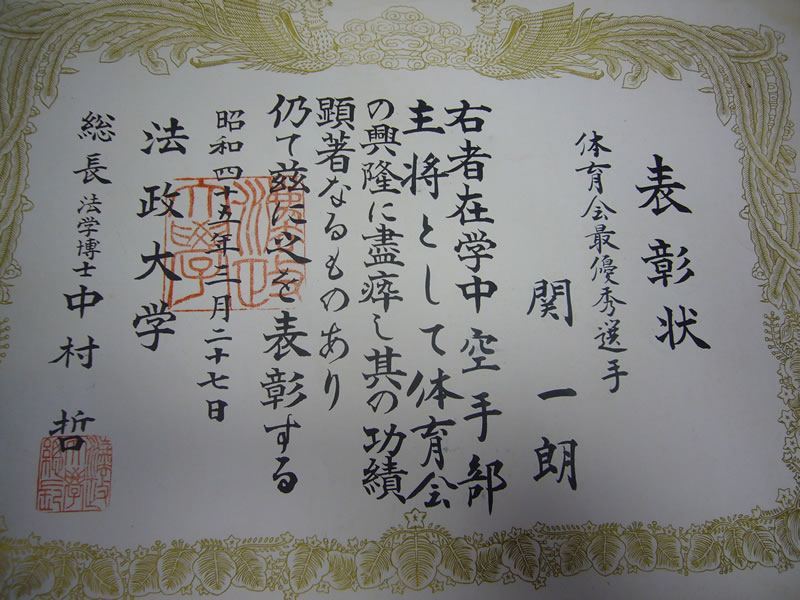 表彰状
体育会最優秀選手
関一朗
右者在学中空手部
主将として体育会
の興隆に盡瘁し其の功績
顕著なるものあり
仍て茲に之を表彰する
昭和四十五年三月二十七日
法政大学
総長 法学博士 中村 哲